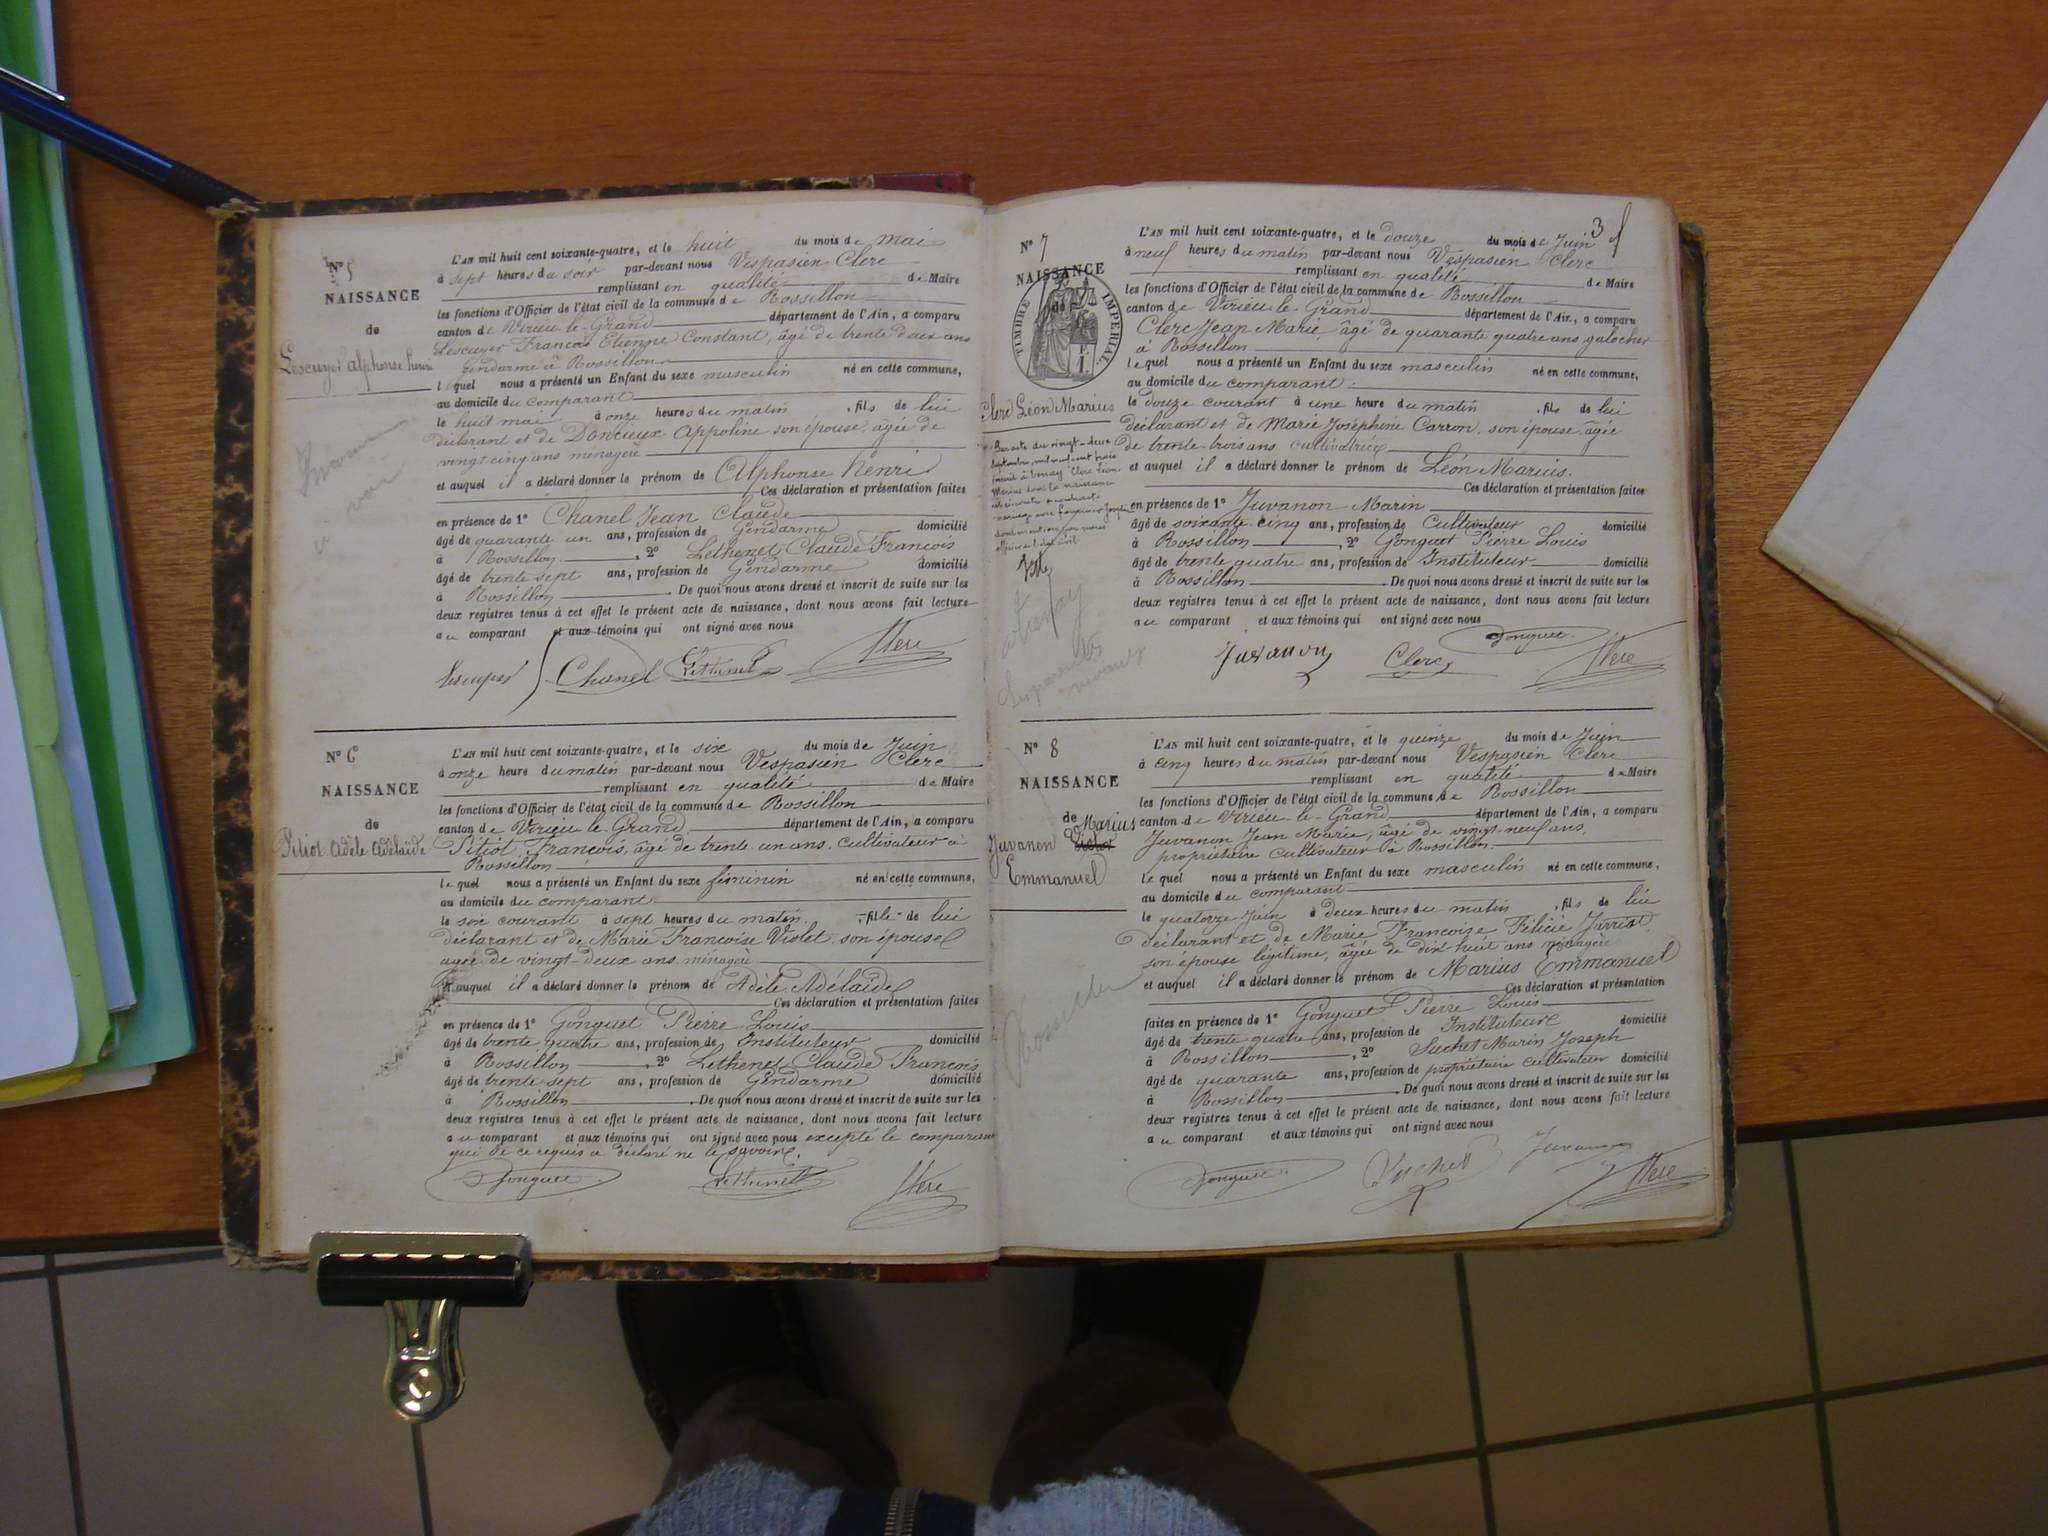 N° 5
NAISSANCE
de
Lescuyer Alphonse henri
L'AN mil huit cent soixante-quatre, et le huit du mois de mai
à sept heures du soir par-devant nous Vespasien Clerc
remplissant en qualité de Maire
les fonctions d'Officier de l'état civil de la commune de Rossillon
canton de Virieu le Grand département de l'Ain, a comparu
Lescuyer Francois Etienne Constant, âgé de trente deux ans
gendarme à Rossillon
lequel nous a présenté un Enfant du sexe masculin né en cette commune,
au domicile du comparant
le huit mai à onze heures du matin, fils de lui
déclarant et de Doncieux Appoline son épouse, agée de
vingt cinq ans ménagère
et auquel il a déclaré donner le prénom de Alphonse henri
Ces déclaration et présentation faites
en présence de 1° Chanel Jean Claude
âgé de quarante un ans, profession de Gendarme domicilié
à Rossillon, 2° Lethenet Claude Francois
âgé de trente sept ans, profession de Gendarme domicilié
à Rossillon. De quoi nous avons dressé et inscrit de suite sur les
deux registres tenus à cet effet le présent acte de naissance, dont nous avons fait lecture
au comparant et aux témoins qui ont signé avec nous
Lescuyer Chanel Lethenet Clerc
N° 6
NAISSANCE
de
Pitiot Adèle Adélaïde
L'AN mil huit cent soixante-quatre, et le six du mois de Juin
à onze heure du matin par-devant nous Vespasien Clerc
remplissant en qualité de Maire
les fonctions d'Officier de l'état civil de la commune de Rossillon
canton de Virieu le Grand département de l'Ain, a comparu
Pitiot François, âgé de trente un ans, cultivateur à
Rossillon
lequel nous a présenté un Enfant du sexe féminin né en cette commune,
au domicile du comparant
le six courant à sept heures du matin, fille de lui
déclarant et de Marie Francoise Violet son épouse
agée de vingt-deux ans ménagère
et auquel il a déclaré donner le prénom de Adèle Adélaïde
Ces déclaration et présentation faites
en présence de 1° Gonguet Pierre Louis
âgé de trente quatre ans, profession de Instituteur domicilié
à Rossillon, 2° Lethenet Claude François
âgé de trente sept ans, profession de Gendarme domicilié
à Rossillon. De quoi nous avons dressé et inscrit de suite sur les
deux registres tenus à cet effet le présent acte de naissance, dont nous avons fait lecture
au comparant et aux témoins qui ont signé avec nous excepté le comparant
qui de ce requis a déclaré ne le savoir.
Gonguet Lethenet Clerc
3
N° 7
NAISSANCE
de
TIMBRE IMPERIAL
Clerc Léon Marius
L'AN mil huit cent soixante-quatre, et le douze du mois de Juin
à neuf heures du matin par-devant nous Vespasien Clerc
remplissant en qualité de Maire
les fonctions d'Officier de l'état civil de la commune de Rossillon
canton de Virieu le Grand département de l'Ain, a comparu
Clerc Jean Marie, âgé de quarante quatre ans galocher
à Rossillon
lequel nous a présenté un Enfant du sexe masculin né en cette commune,
au domicile du comparant.
le douze courant à une heure du matin, fils de lui
déclarant et de Marie Joséphine Carron, son épouse, âgée
de trente-trois ans cultivatrice
et auquel il a déclaré donner le prénom de Léon Marius.
Ces déclaration et présentation faites
en présence de 1° Juvanon Marin
âgé de soixante cinq ans, profession de Cultivateur domicilié
à Rossillon, 2° Gonguet Pierre Louis
âgé de trente quatre ans, profession de Instituteur domicilié
à Rossillon. De quoi nous avons dressé et inscrit de suite sur les
deux registres tenus à cet effet le présent acte de naissance, dont nous avons fait lecture
au comparant et aux témoins qui ont signé avec nous
Gonguet
Juvanon Clerc Clerc
N° 8
NAISSANCE
de Marius
Juvanon
Emmanuel
L'AN mil huit cent soixante-quatre, et le quinze du mois de Juin
à cinq heures du matin par-devant nous Vespasien Clerc
remplissant en qualité de Maire
les fonctions d'Officier de l'état civil de la commune de Rossillon
canton de Virieu le Grand département de l'Ain, a comparu
Juvanon Jean Marie, âgé de vingt-neuf ans,
propriétaire cultivateur à Rossillon.
lequel nous a présenté un Enfant du sexe masculin né en cette commune,
au domicile du comparant
le quatorze Juin à deux heures du matin, fils de lui
déclarant et de Marie Françoise Félicie Jarrin
son épouse légitime, âgée de dix huit ans ménagère
et auquel il a déclaré donner le prénom de Marius Emmanuel
Ces déclaration et présentation
faites en présence de 1° Gonguet Pierre Louis
âgé de trente quatre ans, profession de Instituteur domicilié
à Rossillon, 2° Suchet Marin Joseph
âgé de quarante ans, profession de propriétaire cultivateur domicilié
à Rossillon. De quoi nous avons dressé et inscrit de suite sur les
deux registres tenus à cet effet le présent acte de naissance, dont nous avons fait lecture
au comparant et aux témoins qui ont signé avec nous
Gonguet Suchet Juvanon Clerc